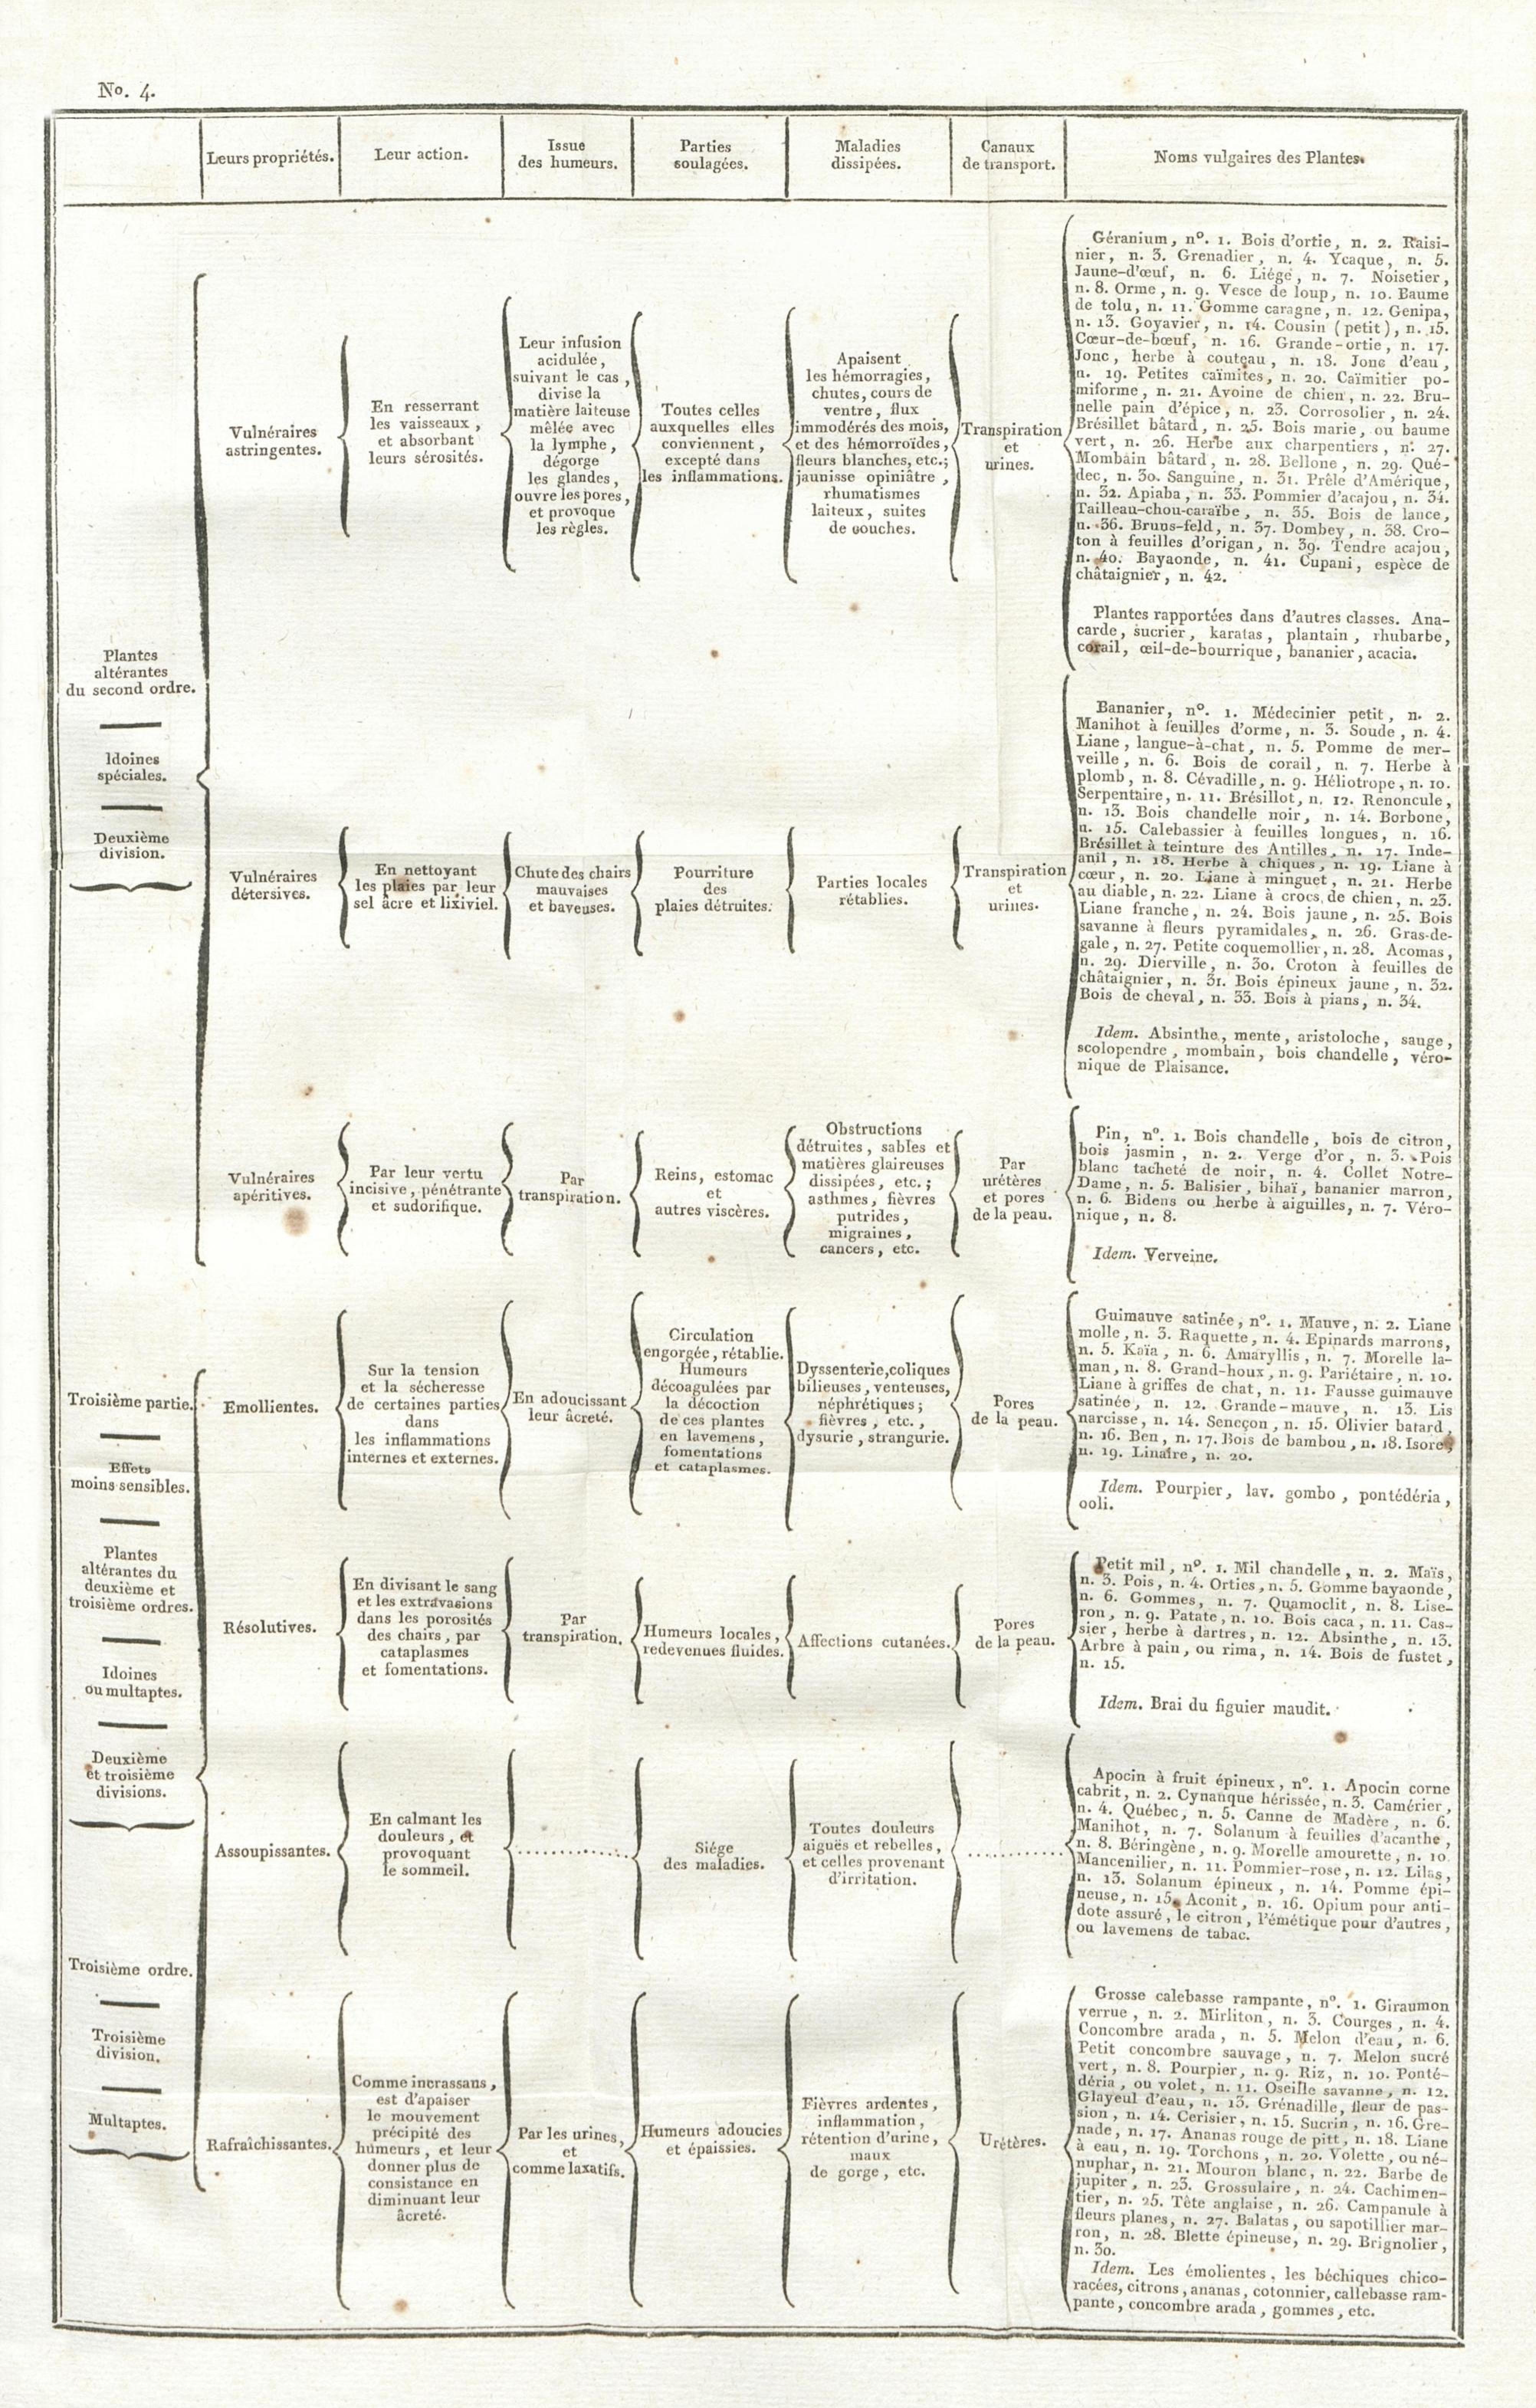 No. 4.
Leurs propriétés.
Leur action.
Issue
des humeurs.
Parties
soulagées.
Maladies
dissipées.
Canaux
de transport.
Noms vulgaires des Plantes.
Plantes
altérantes
du second ordre.
Idoines
spéciales.
Deuxième
division.
Vulnéraires
astringentes.
En resserrant
les vaisseaux,
et absorbant
leurs sérosités.
Leur infusion
acidulée,
suivant le cas,
divise la
matière laiteuse
mêlée avec
la lymphe,
dégorge
les glandes,
ouvre les pores,
et provoque
les règles.
Toutes celles
auxquelles elles
conviennent,
excepté dans
les inflammations.
Apaisent
les hémorragies,
chutes, cours de
ventre, flux
immodérés des mois,
et des hémorroïdes,
fleurs blanches, etc.;
jaunisse opiniâtre,
rhumatismes
laiteux, suites
de couches.
Transpiration
et
urines.
Géranium, nº. 1. Bois d'ortie, n. 2. Raisi-
nier, n. 3. Grenadier, n. 4. Ycaque, n. 5.
Jaune-d'œuf, n. 6. Liége, n. 7. Noisetier,
n. 8. Orme, n. 9. Vesce de loup, n. 10. Baume
de tolu, n. 11. Gomme caragne, n. 12. Genipa,
n. 13. Goyavier, n. 14. Cousin (petit), n. 15.
Cœur-de-bœuf, n. 16. Grande-ortie, n. 17.
Jonc, herbe à couteau, n. 18. Jonc d'eau,
n. 19. Petites caïmites, n. 20. Caïmitier po-
miforme, n. 21. Avoine de chien, n. 22. Bru-
nelle pain d'épice, n. 23. Corrosolier, n. 24.
Brésillet bâtard, n. 25. Bois marie, ou baume
vert, n. 26. Herbe aux charpentiers, n. 27.
Mombain bâtard, n. 28. Bellone, n. 29. Qué-
dec, n. 30. Sanguine, n. 31. Prêle d'Amérique,
n. 32. Apiaba, n. 33. Pommier d'acajou, n. 34.
Tailleau-chou-caraïbe, n. 35. Bois de lance,
n. 36. Bruns-feld, n. 37. Dombey, n. 38. Cro-
ton à feuilles d'origan, n. 39. Tendre acajou,
n. 40. Bayaonde, n. 41. Cupani, espèce de
châtaignier, n. 42.
Plantes rapportées dans d'autres classes. Ana-
carde, sucrier, karatas, plantain, rhubarbe,
corail, œil-de-bourrique, bananier, acacia.
Vulnéraires
détersives.
En nettoyant
les plaies par leur
sel âcre et lixiviel.
Chute des chairs
mauvaises
et baveuses.
Pourriture
des
plaies détruites.
Parties locales
rétablies.
Transpiration
et
urines.
Bananier, nº. 1. Médecinier petit, n. 2.
Manihot à feuilles d'orme, n. 3. Soude, n. 4.
Liane, langue-à-chat, n. 5. Pomme de mer-
veille, n. 6. Bois de corail, n. 7. Herbe à
plomb, n. 8. Cévadille, n. 9. Héliotrope, n. 10.
Serpentaire, n. 11. Brésillot, n. 12. Renoncule,
n. 13. Bois chandelle noir, n. 14. Borbone,
n. 15. Calebassier à feuilles longues, n. 16.
Brésillet à teinture des Antilles, n. 17. Inde-
anil, n. 18. Herbe à chiques, n. 19. Liane à
cœur, n. 20. Liane à minguet, n. 21. Herbe
au diable, n. 22. Liane à crocs de chien, n. 23.
Liane franche, n. 24. Bois jaune, n. 25. Bois
savanne à fleurs pyramidales, n. 26. Gras-de-
gale, n. 27. Petite coquemollier, n. 28. Acomas,
n. 29. Dierville, n. 30. Croton à feuilles de
châtaignier, n. 31. Bois épineux jaune, n. 32.
Bois de cheval, n. 33. Bois à pians, n. 34.
Idem. Absinthe, mente, aristoloche, sauge,
scolopendre, mombain, bois chandelle, véro-
nique de Plaisance.
Vulnéraires
apéritives.
Par leur vertu
incisive, pénétrante
et sudorifique.
Par
transpiration.
Reins, estomac
et
autres viscères.
Obstructions
détruites, sables et
matières glaireuses
dissipées, etc.;
asthmes, fièvres
putrides,
migraines,
cancers, etc.
Par
urétères
et pores
de la peau.
Pin, nº. 1. Bois chandelle, bois de citron,
bois jasmin, n. 2. Verge d'or, n. 3. Pois
blanc tacheté de noir, n. 4. Collet Notre-
Dame, n. 5. Balisier, bihaï, bananier marron,
n. 6. Bidens ou herbe à aiguilles, n. 7. Véro-
nique, n. 8.
Idem. Verveine.
Troisième partie.
Effets
moins sensibles.
Plantes
altérantes du
deuxième et
troisième ordres.
Idoines
ou multaptes.
Deuxième
et troisième
divisions.
Emollientes.
Sur la tension
et la sécheresse
de certaines parties
dans
les inflammations
internes et externes.
En adoucissant
leur âcreté.
Circulation
engorgée, rétablie.
Humeurs
décoagulées par
la décoction
de ces plantes
en lavemens,
fomentations
et cataplasmes.
Dyssenterie, coliques
bilieuses, venteuses,
néphrétiques;
fièvres, etc.,
dysurie, strangurie.
Pores
de la peau.
Guimauve satinée, nº. 1. Mauve, n. 2. Liane
molle, n. 3. Raquette, n. 4. Epinards marrons,
n. 5. Kaïa, n. 6. Amaryllis, n. 7. Morelle la-
man, n. 8. Grand-houx, n. 9. Pariétaire, n. 10.
Liane à griffes de chat, n. 11. Fausse guimauve
satinée, n. 12. Grande-mauve, n. 13. Lis
narcisse, n. 14. Seneçon, n. 15. Olivier batard,
n. 16. Ben, n. 17. Bois de bambou, n. 18. Isore,
n. 19. Linaire, n. 20.
Idem. Pourpier, lav. gombo, pontédéria,
ooli.
Résolutives.
En divisant le sang
et les extravasions
dans les porosités
des chairs, par
cataplasmes
et fomentations.
Par
transpiration.
Humeurs locales,
redevenues fluides.
Affections cutanées.
Pores
de la peau.
Petit mil, nº. 1. Mil chandelle, n. 2. Maïs,
n. 3. Pois, n. 4. Orties, n. 5. Gomme bayaonde,
n. 6. Gommes, n. 7. Quamoclit, n. 8. Lise-
ron, n. 9. Patate, n. 10. Bois caca, n. 11. Cas-
sier, herbe à dartres, n. 12. Absinthe, n. 13.
Arbre à pain, ou rima, n. 14. Bois de fustet,
n. 15.
Idem. Brai du figuier maudit.
Assoupissantes.
En calmant les
douleurs, et
provoquant
le sommeil.
Siége
des maladies.
Toutes douleurs
aiguës et rebelles,
et celles provenant
d'irritation.
Apocin à fruit épineux, nº. 1. Apocin corne
cabrit, n. 2. Cynanque hérissée, n. 3. Camérier,
n. 4. Québec, n. 5. Canne de Madère, n. 6.
Manihot, n. 7. Solanum à feuilles d'acanthe,
n. 8. Béringène, n. 9. Morelle amourette, n. 10.
Mancenilier, n. 11. Pommier-rose, n. 12. Lilas,
n. 13. Solanum épineux, n. 14. Pomme épi-
neuse, n. 15. Aconit, n. 16. Opium pour anti-
dote assuré, le citron, l'émétique pour d'autres,
ou lavemens de tabac.
Troisième ordre.
Troisième
division.
Multaptes.
Rafraîchissantes.
Comme incrassans,
est d'apaiser
le mouvement
précipité des
humeurs, et leur
donner plus de
consistance en
diminuant leur
âcreté.
Par les urines,
et
comme laxatifs.
Humeurs adoucies
et épaissies.
Fièvres ardentes,
inflammation,
rétention d'urine,
maux
de gorge, etc.
Urétères.
Grosse calebasse rampante, nº. 1. Giraumon
verrue, n. 2. Mirliton, n. 3. Courges, n. 4.
Concombre arada, n. 5. Melon d'eau, n. 6.
Petit concombre sauvage, n. 7. Melon sucré
vert, n. 8. Pourpier, n. 9. Riz, n. 10. Ponté-
déria, ou volet, n. 11. Oseille savanne, n. 12.
Glayeul d'eau, n. 13. Grénadille, fleur de pas-
sion, n. 14. Cerisier, n. 15. Sucrin, n. 16. Gre-
nade, n. 17. Ananas rouge de pitt, n. 18. Liane
à eau, n. 19. Torchons, n. 20. Volette, ou né-
nuphar, n. 21. Mouron blanc, n. 22. Barbe de
jupiter, n. 23. Grossulaire, n. 24. Cachimen-
tier, n. 25. Tête anglaise, n. 26. Campanule à
fleurs planes, n. 27. Balatas, ou sapotillier mar-
ron, n. 28. Blette épineuse, n. 29. Brignolier,
n. 30.
Idem. Les émolientes, les béchiques chico-
racées, citrons, ananas, cotonnier, callebasse ram-
pante, concombre arada, gommes, etc.